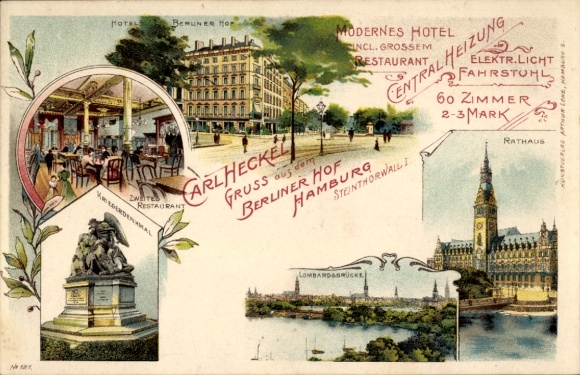 HOTEL BERLINER HOF
MODERNES HOTEL
INCL. GROSSEM
RESTAURANT
CENTRAL HEIZUNG
ELEKTR. LICHT
FAHRSTUHL
60 ZIMMER
2-3 MARK
ZWEITES
RESTAURANT
CARL HECKEL
GRUSS aus dem
BERLINER HOF
HAMBURG
STEINTHORWALL 1.
RATHAUS
KRIEGERDENKMAL
LOMBARDSBRÜCKE
KUNSTVERLAG ARTHUR LOHE, HAMBURG 5.